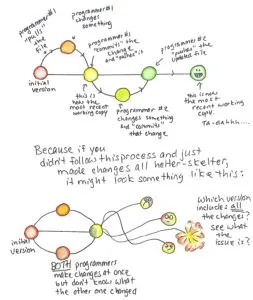 programmer #1
"pulls"
the
file
programmer #1
changes
something
programmer #1
"commits" the
change
and "pushes" it
programmer #2
"pushes" the
updated file
initial
version
this is
now the
most recent
working copy
programmer #2
changes something
and "commits"
that change
this is now
the most
recent working
copy.
Ta-dahhh....
Because if you
didn't follow this process and just
made changes all helter-skelter,
it might look something like this:
initial
version
BOTH programmers
make changes at once
but don't know what
the other one changed
Which version
includes all
the changes?
see what
the
issue is?